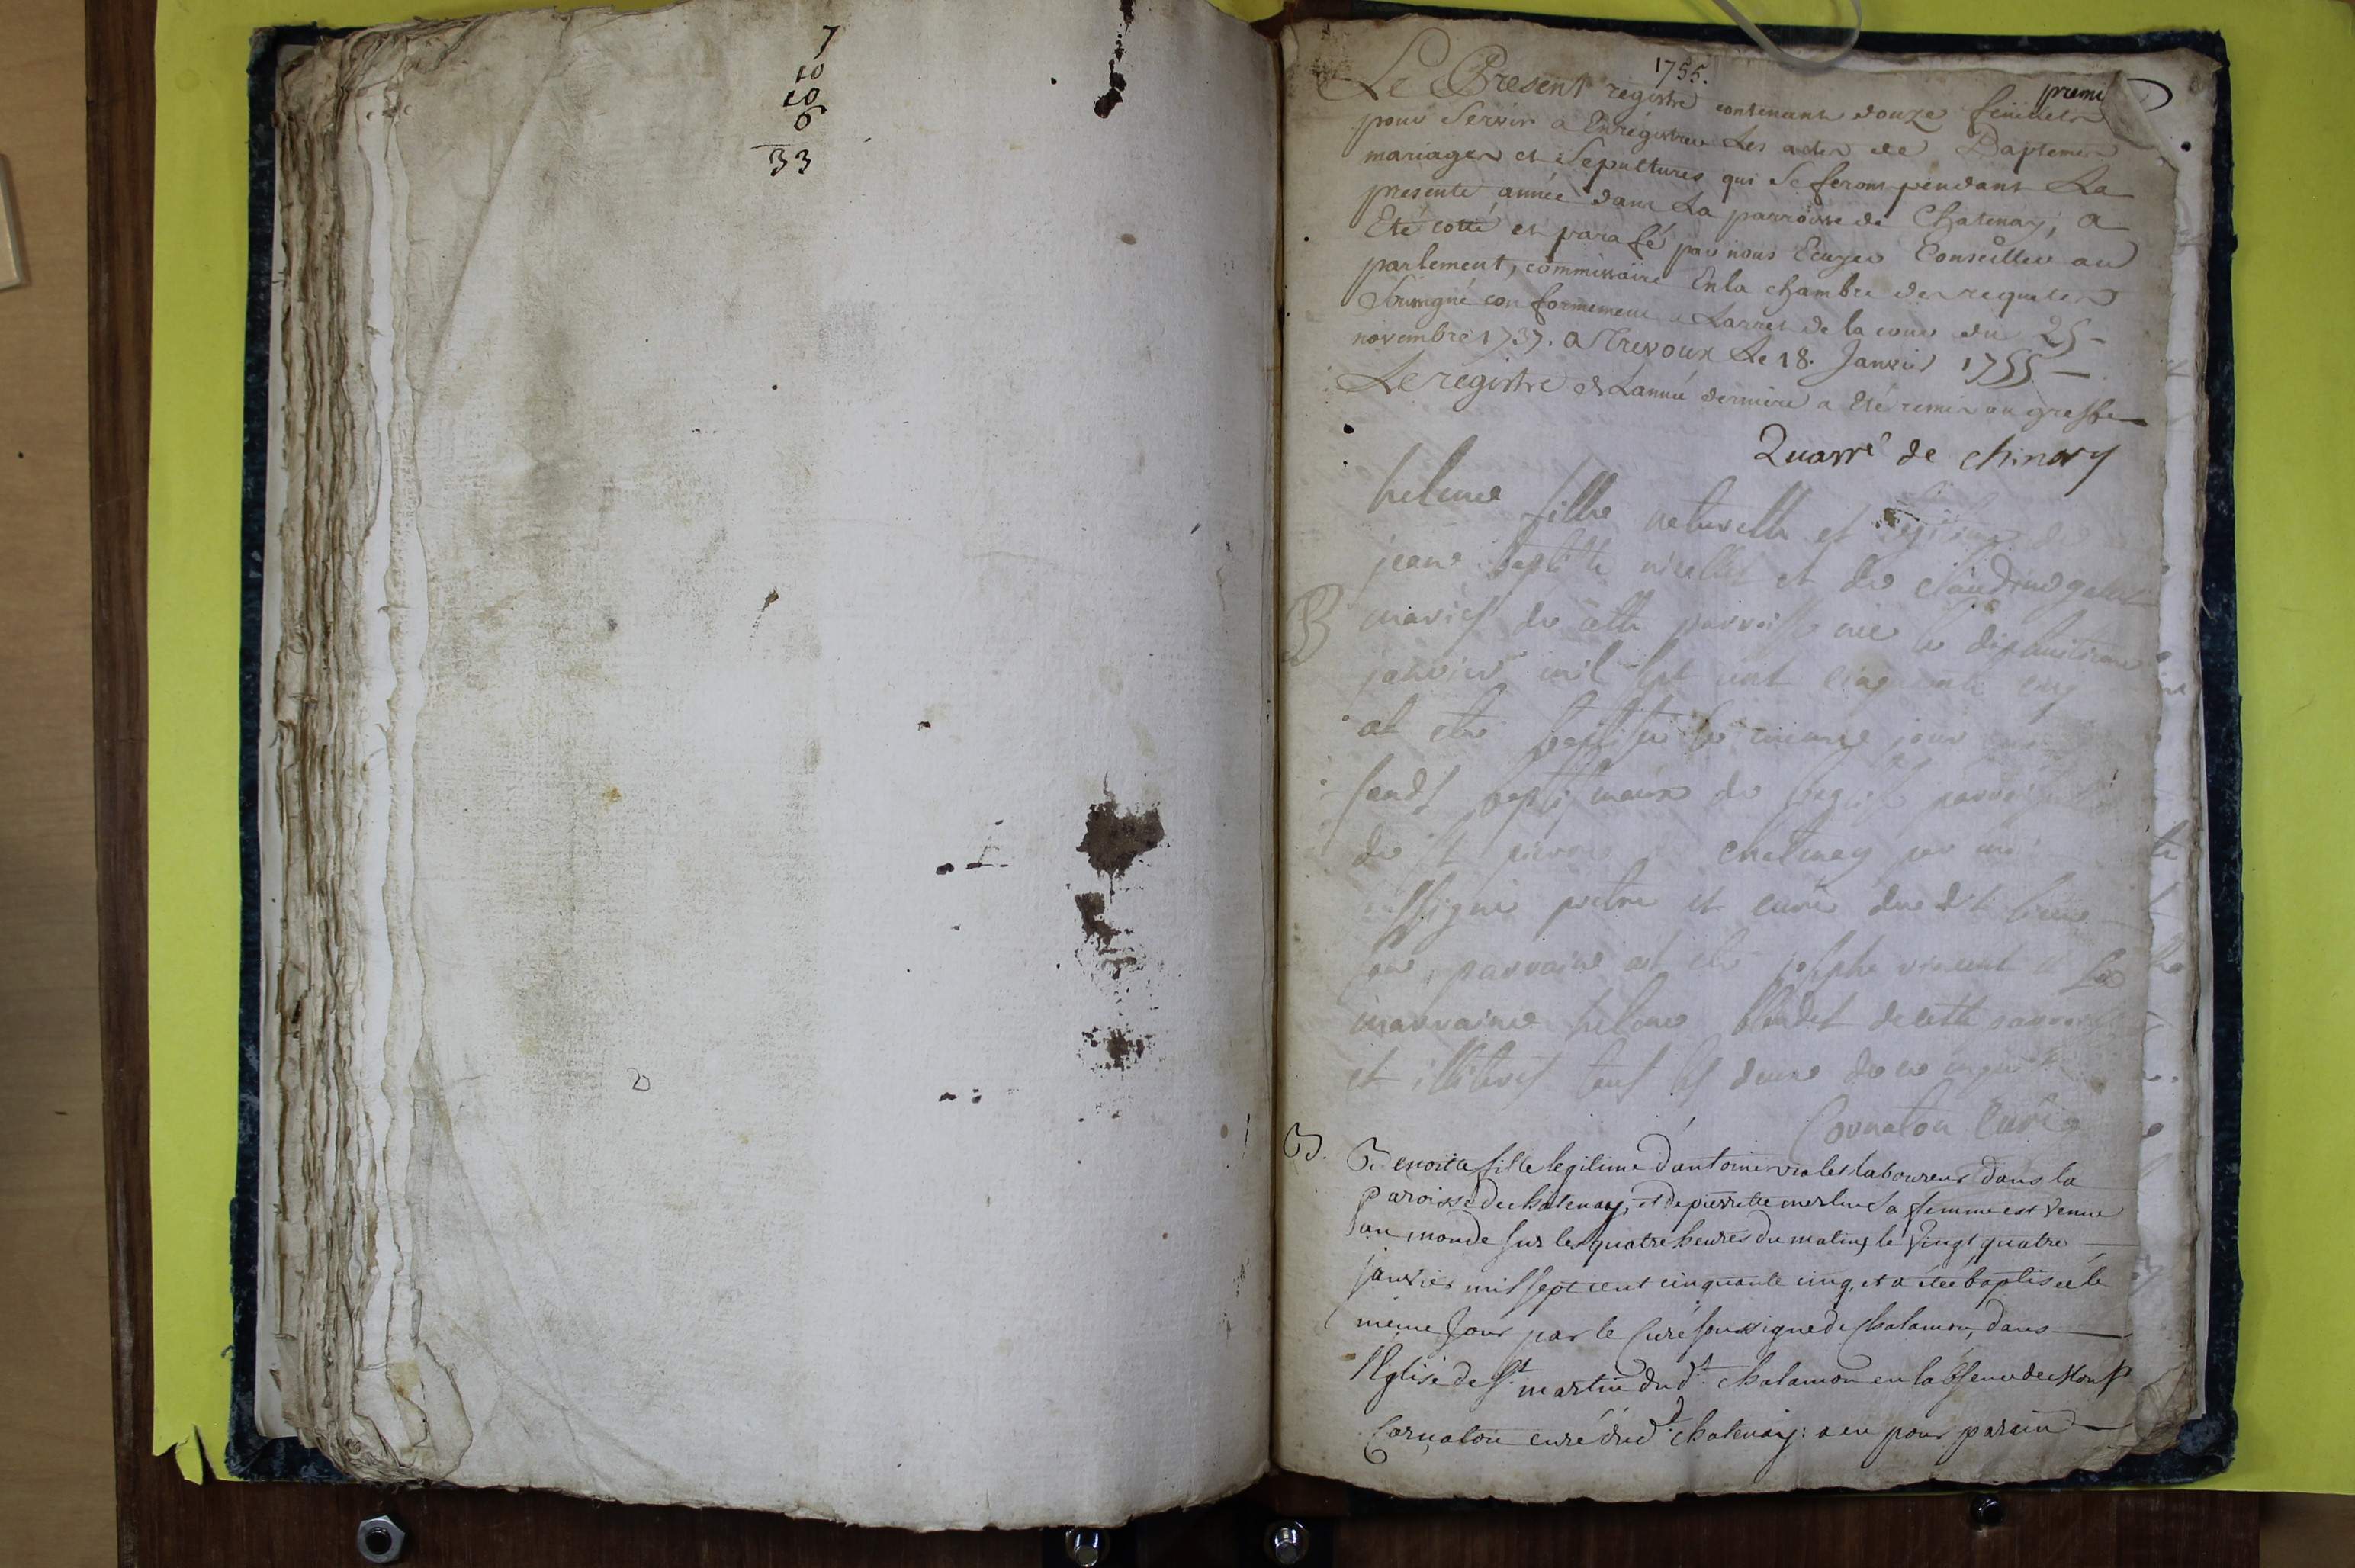 7
10
10
6
33
1755.
premi
Le Present registre contenant douze feuillets
pour Servir a Enregistrer Les actes de Baptemes
mariages et Sepultures qui Se feront pendant La
presente année dans La parroisse de Chatenay, a
Eté cotté et parafé par nous Ecuyer Conseiller au
parlement, commissaire En la chambre des requetes
Soussigné conformement a Larret de la cour du 25
novembre 1737. a Trevoux Le 18. Janvier 1755
Le registre de Lannée derniere a Eté remis au greffe
Quarré de chinary
helene fille naturelle et legitime de
jean baptiste et de claudine
B
mariés de cette parroisse née le dixhuitieme
janvier mil sept cent cinquante cinq
at été baptisée le meme jour
fonds baptismaux de parroissiale
de St pierre chatenay par moi
soussigné pretre et curé du dit lieu
son parrain at été joseph vincent et sa
marraine helene de cette parroisse
et illiterés tous les deux de ce enquis
Cornaton Curé
B.
Benoite fille legitime d'antoine vialet laboureur dans la
paroisse de chatenay, et de pierrette merlin Sa femme est venue
au monde sur les quatre heures du matin, le vingt quatre
janvier mil sept cent cinquante cinq, et a étée baptisée le
même jour par le Curé soussigné de chalamon, dans
l'Eglise de St. martin dud. chalamon en l'absence de Monsr
Cornaton curé dud. chatenay: a eu pour parain